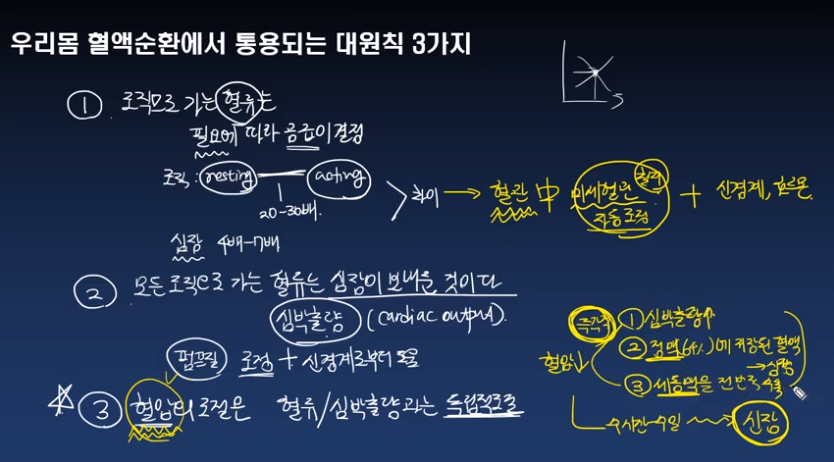 우리몸 혈액순환에서 통용되는 대원칙 3가지
① 조직으로 가는 혈류는
필요에 따라 공급이 결정
조직 : resting acting
20-30배.
차이 → 혈관 中 미세혈관 혈관 자동조절 + 신경계, 호르몬.
심장 4배-7배
② 모든 조직으로 가는 혈류는 심장이 보내온 것이다
심박출량 (cardiac output).
펌프질 조정 + 신경계로부터 도움
③ 혈압의 조절은 혈류/심박출량과는 독립적조절
혈압↓
즉각적
① 심박출량
② 정맥(64%)에 저장된 혈액
→ 심장
③ 세동맥을 전반적 수축
수시간-수일 → 신장
S